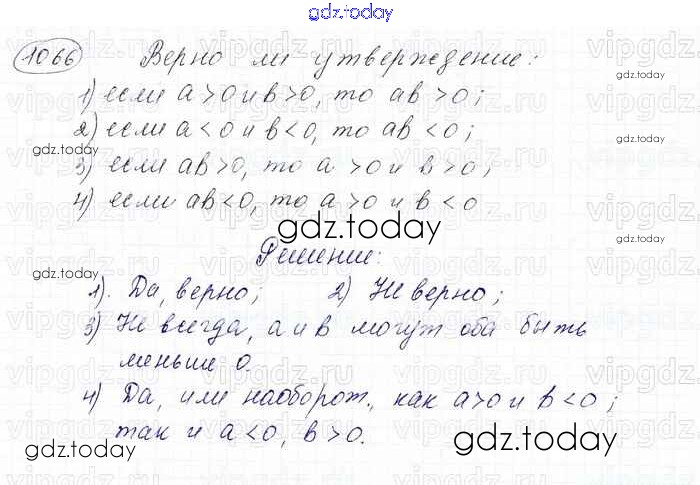 gdz.today
1066 Верно ли утверждение:
1) если a > 0 и в > 0, то ав > 0;
2) если а < 0 и в < 0, то ав < 0;
3) если ав > 0, то а > 0 и в > 0;
4) если ав < 0, то а > 0 и в < 0
gdz.today
Решение:
1). Да, верно; 2) Не верно;
3) Не всегда, а и в могут оба быть
меньше 0.
4) Да, или наоборот., как а > 0 и в < 0;
так и а < 0, в > 0.
gdz.today